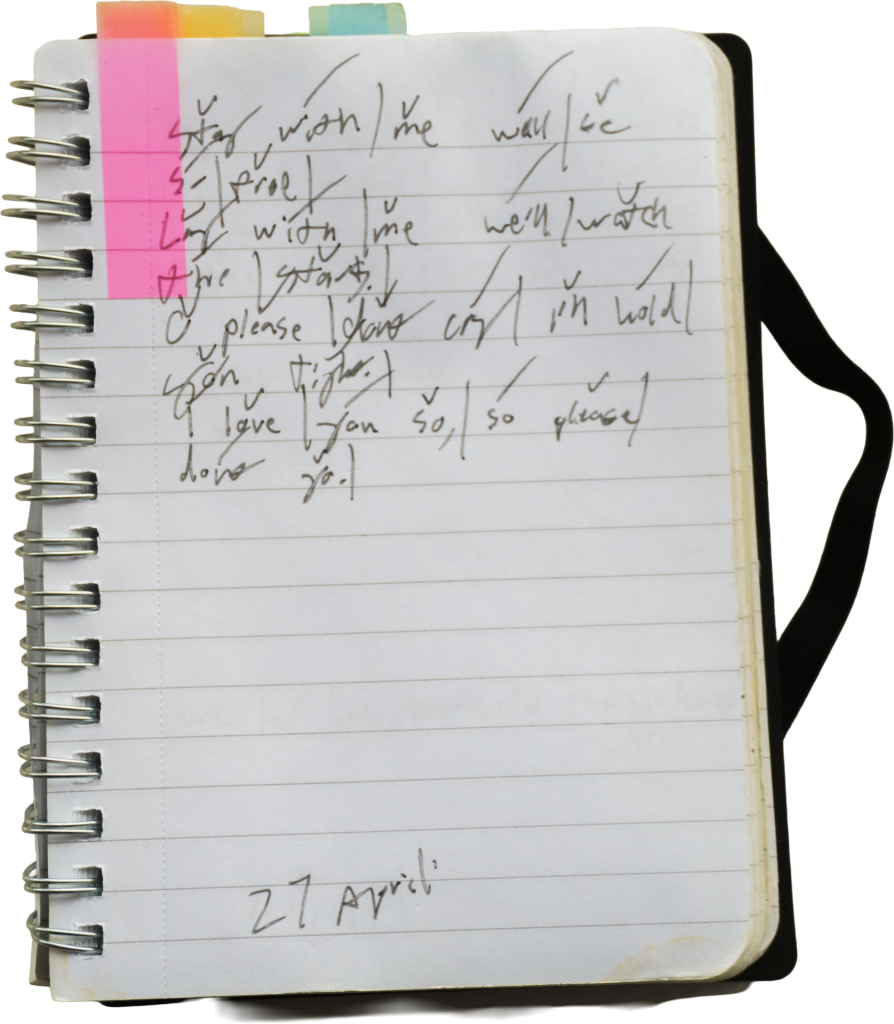 stay with | me wall | se
so | free |
lay with | me we'll | watch
the | stars. |
O please | dont cry | i'll hold |
you tight. |
I love | you so, | so please |
dont go. |
27 April